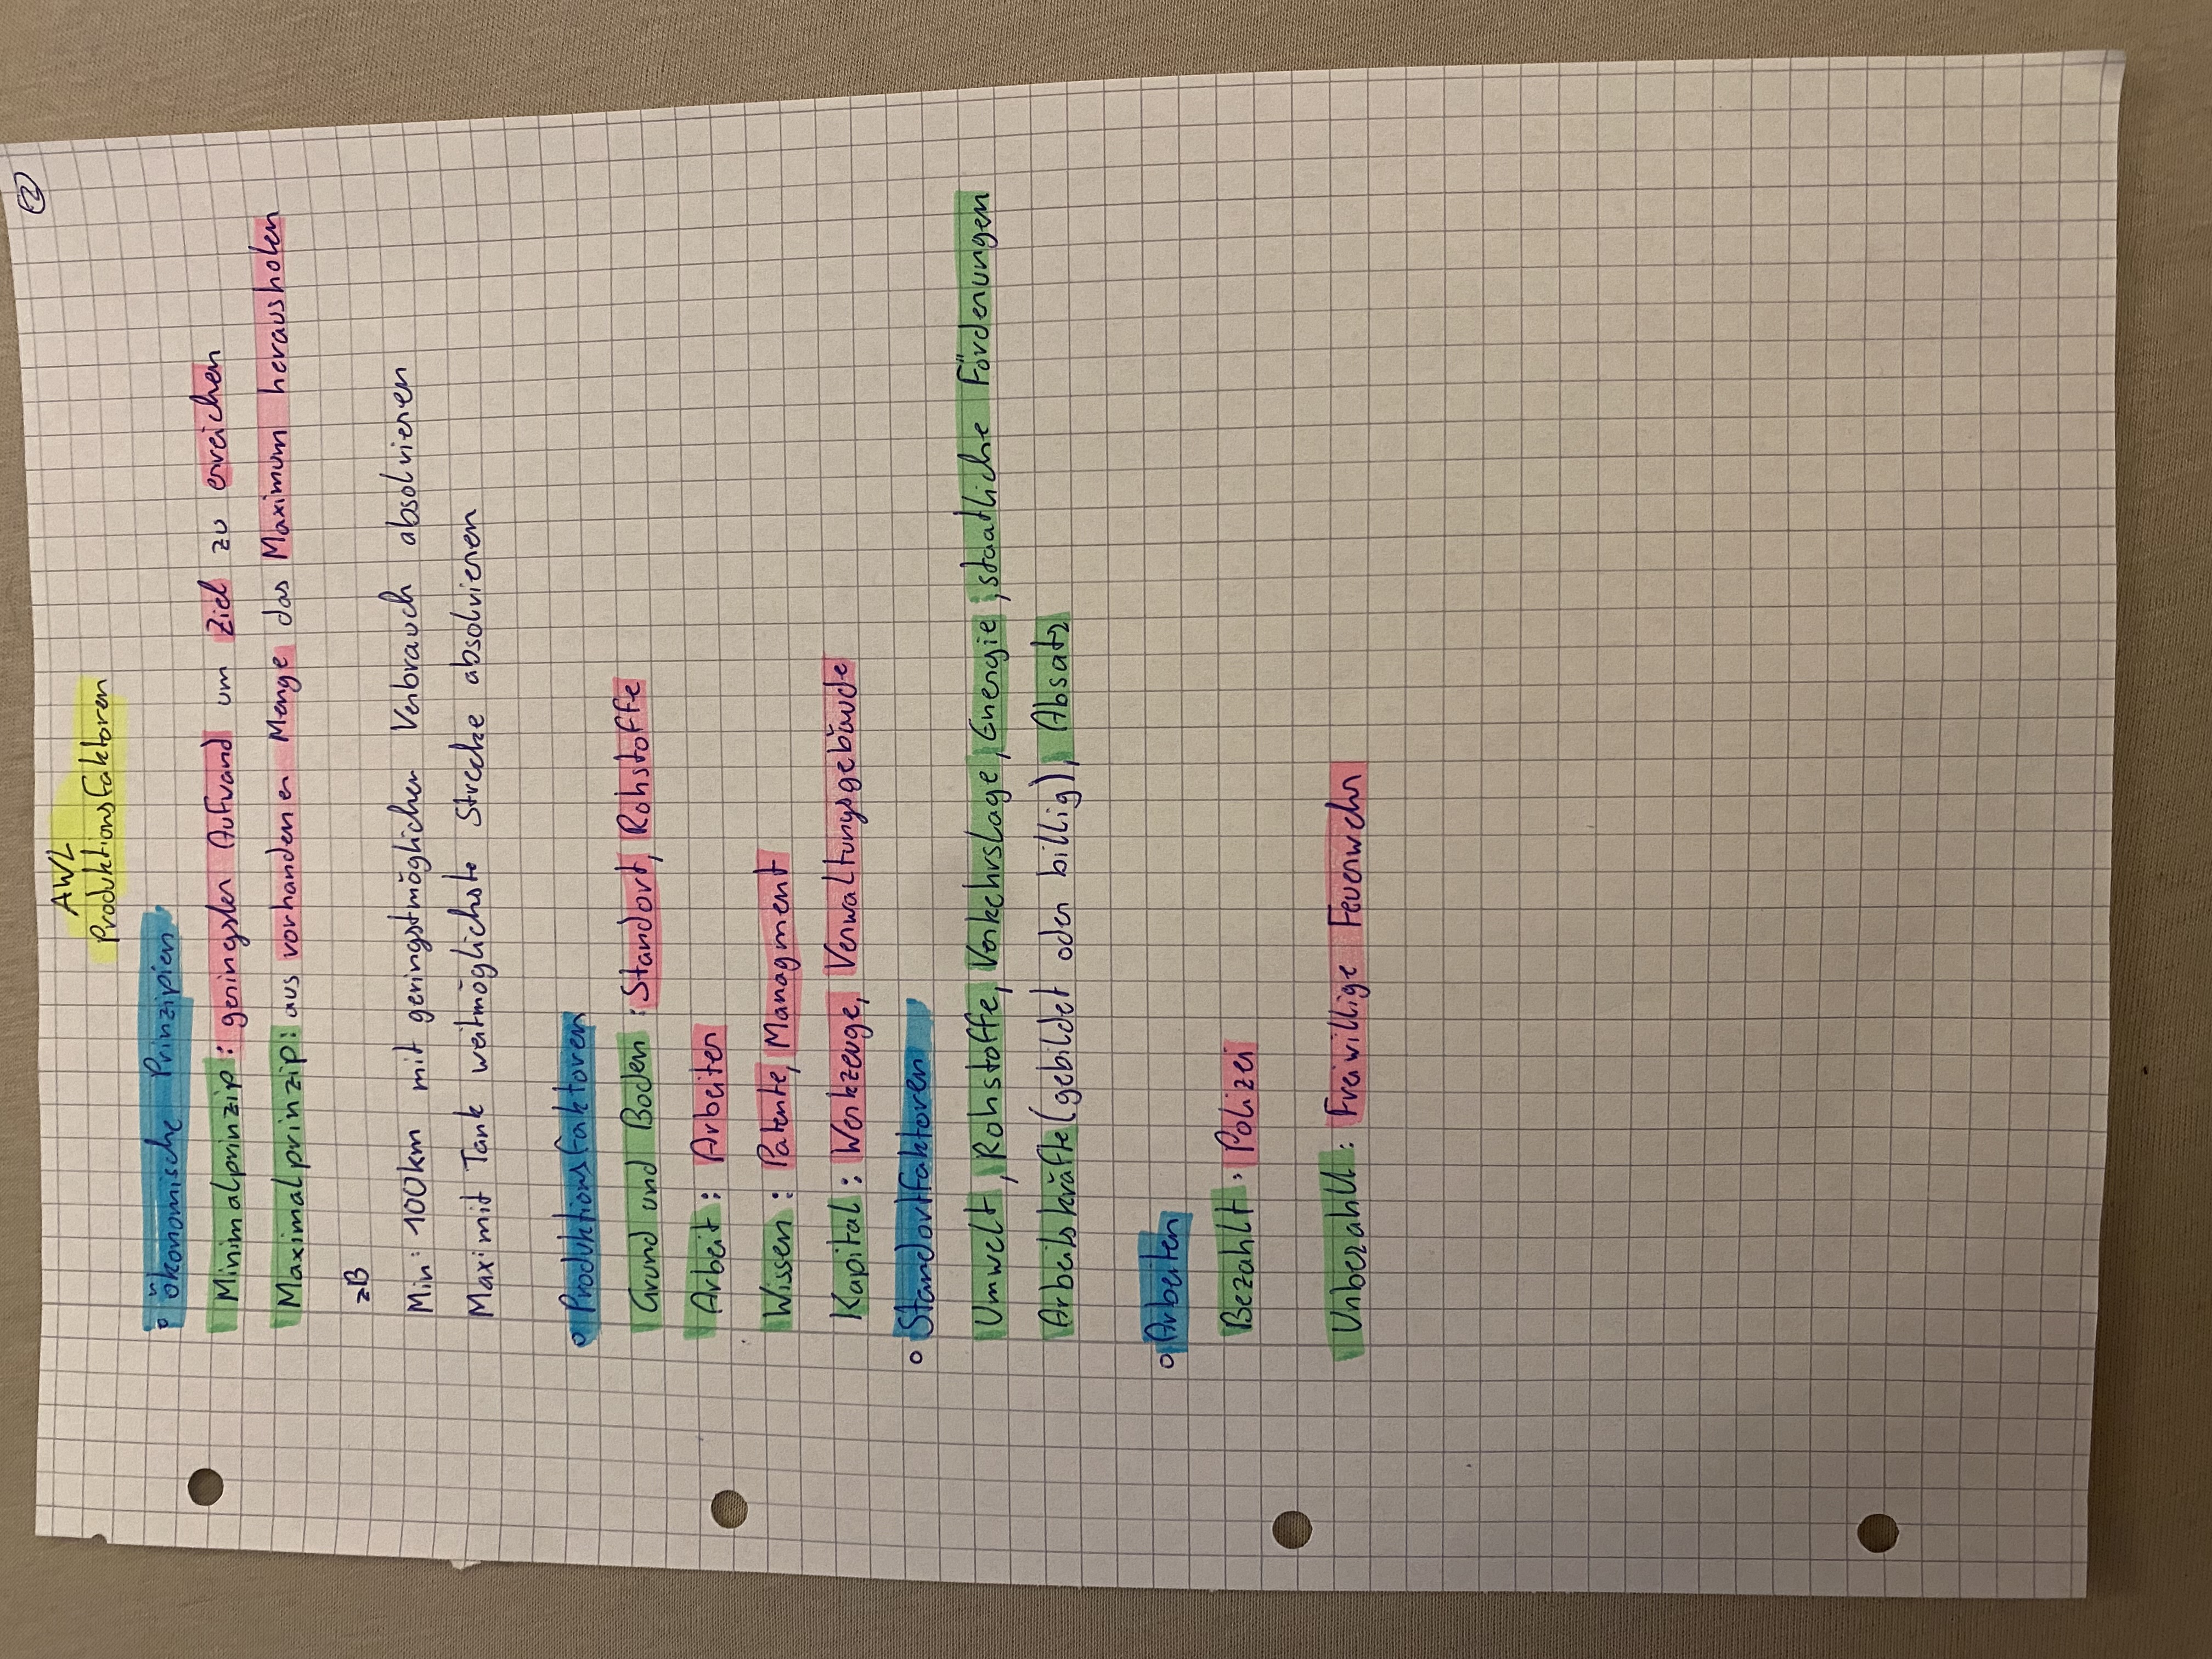 2
AWL
Produktionsfaktoren
° ökonomische Prinzipien
Minimalprinzip: geringsten Aufwand um Ziel zu erreichen
Maximalprinzip: aus vorhandener Menge das Maximum herausholen
zB
Min: 100km mit geringstmöglichen Verbrauch absolvieren
Max: mit Tank weitmöglichste Strecke absolvieren
° Produktionsfaktoren
Grund und Boden: Standort, Rohstoffe
Arbeit: Arbeiter
Wissen: Patente, Managment
Kapital: Werkzeuge, Verwaltungsgebäude
° Standortfaktoren
Umwelt, Rohstoffe, Verkehrslage, Energie, staatliche Förderungen
Arbeitskräfte (gebildet oder billig), Absatz
° Arbeiten
Bezahlt: Polizei
Unbezahlt: Freiwillige Feuerwehr